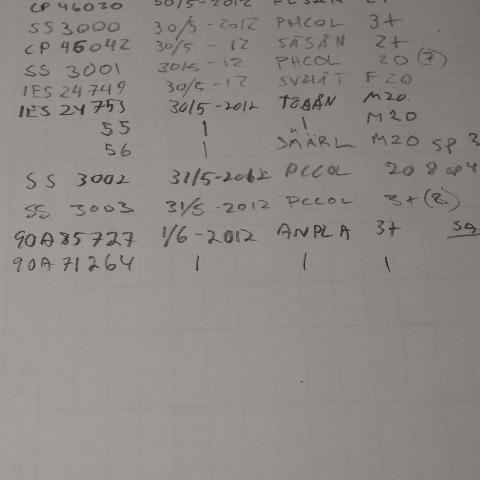 CP 46030 30/5-2012
SS 3000 30/5-2012 PHCOL 3+
CP 46042 30/5-12 SÄSÅN 2+
SS 3001 30/5-12 PHCOL 20 (7)
IES 24749 30/5-12 SVHÄT F20
IES 24753 30/5-2012 TOBÅN M20.
55 | | M20
56 | SMÄRL M20 SP 3
SS 3002 31/5-2012 PCCOL 20 8 SP4
SS 3003 31/5-2012 PCCOL 3+(8)
90A85727 1/6-2012 ANPLA 3+
90A71264 | | |